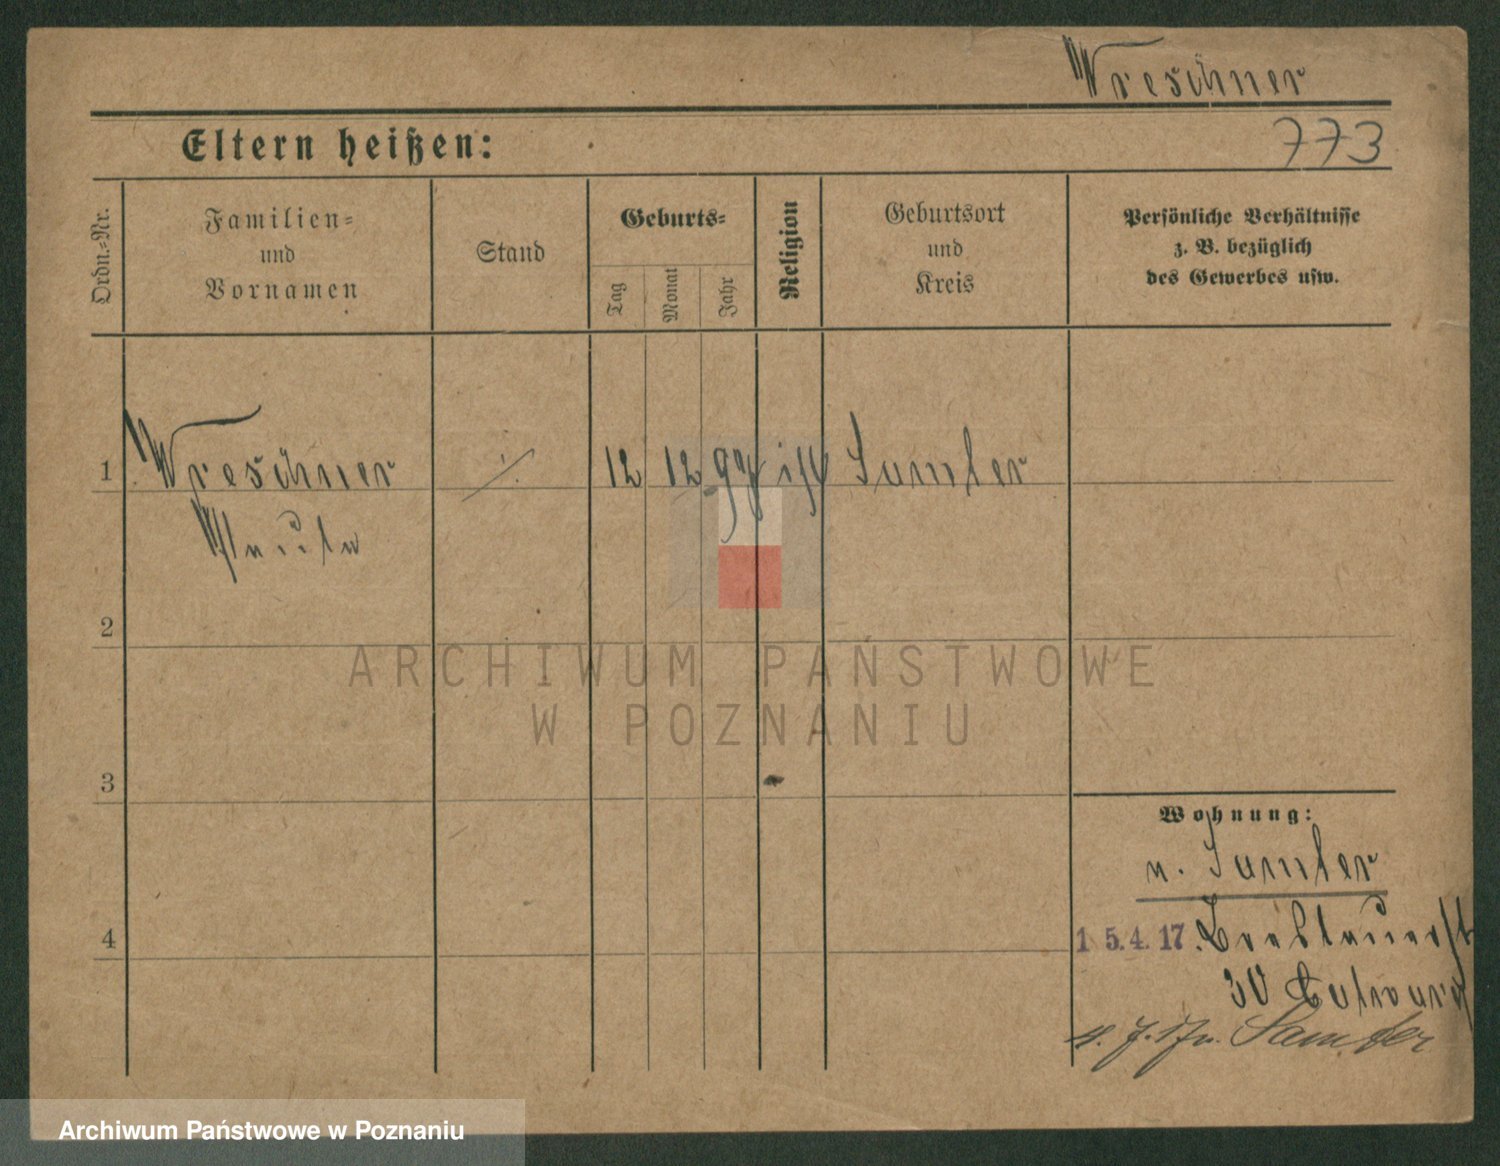 Wreschner
Eltern heißen:
773
Ordn.-Nr.
Familien-
und
Vornamen
Stand
Geburts-
Tag
Monat
Jahr
Religion
Geburtsort
und
Kreis
Persönliche Verhältnisse
z. B. bezüglich
des Gewerbes usw.
1
Wreschner
12 12
Samter
2
ARCHIWUM PAŃSTWOWE
W POZNANIU
3
Wohnung:
n. Samter
4
15.4.17.
30
Samter
Archiwum Państwowe w Poznaniu